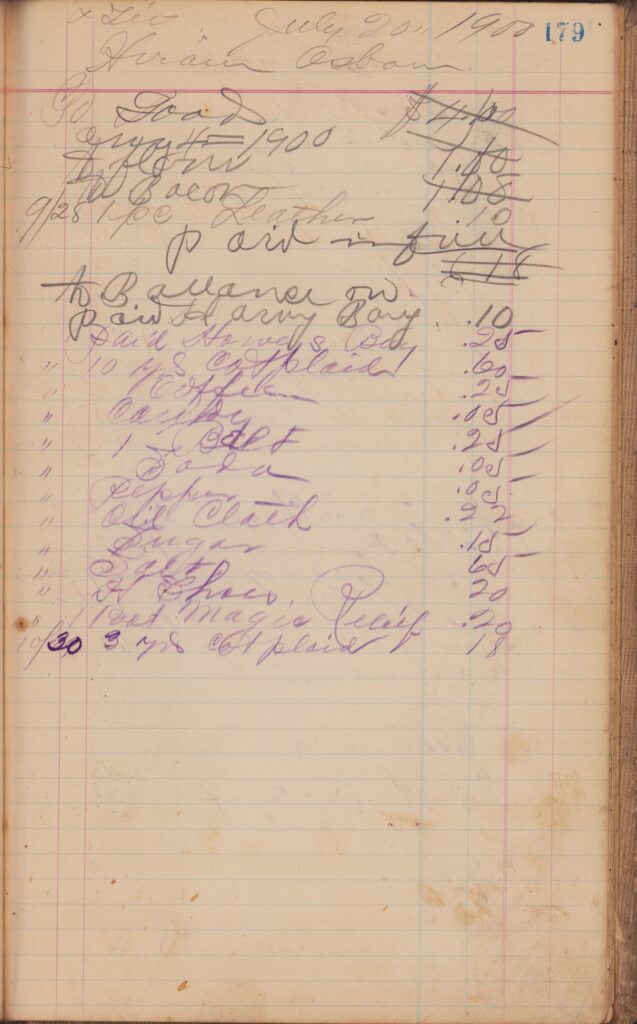 July 20" 1900 179
Hiram Osborn
To Good $4.00
1900
To flour 1.10
To Bacon 1.08
9/28 1 pc Leather 10
paid in full
6.18
To Ballance on
paid Harvy Bary .10
Paid Howe's Boy .25
" 10 yds Cot plaid .60
" Coffee .25
" Candy .05
" 1 - Belt .25
" Soda .05
" Pepper .05
" Oil Cloth .22
" Sugar .15
" Salt 65
" 20
" 1 Bot Magic Relief .20
10/30 3 yds Cot plaid 18